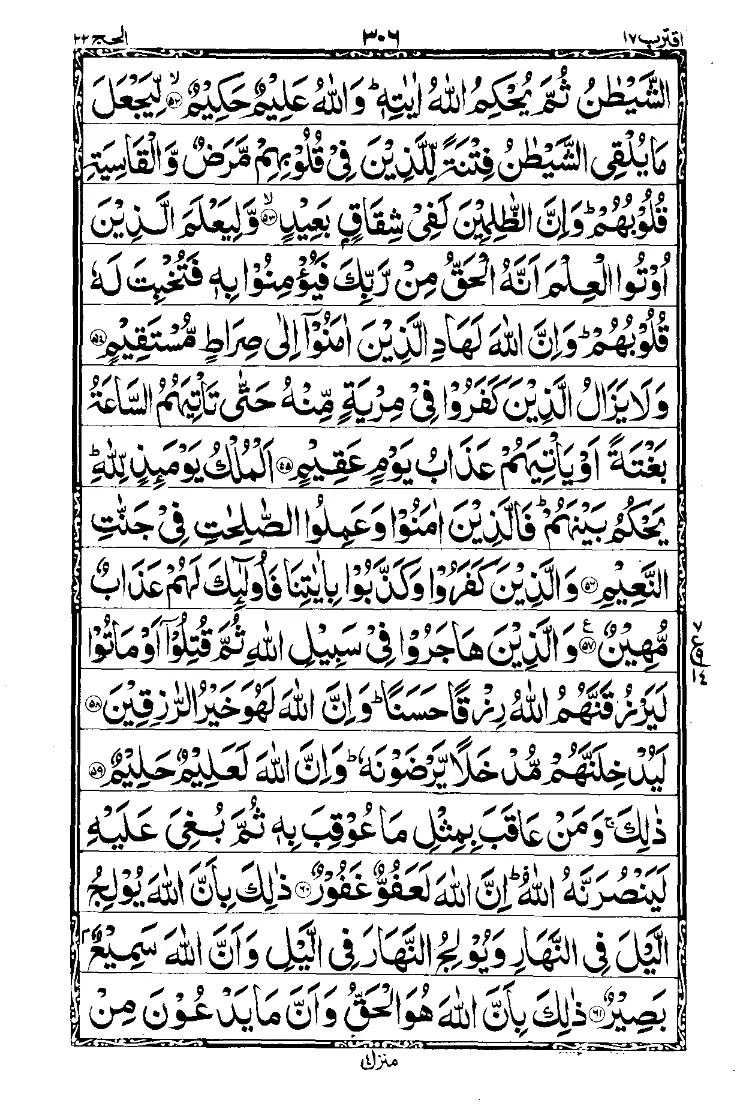 اقترب ١٧ ٣٠٦ الحج ٢٢
الشَّيْطٰنُ ثُمَّ يُحْكِمُ اللّٰهُ اٰيٰتِهٖ ؕ وَاللّٰهُ عَلِيْمٌ حَكِيْمٌ ۙ﴿٥٢﴾ لِّيَجْعَلَ
مَا يُلْقِى الشَّيْطٰنُ فِتْنَةً لِّلَّذِيْنَ فِىْ قُلُوْبِهِمْ مَّرَضٌ وَّالْقَاسِيَةِ
قُلُوْبُهُمْ ؕ وَاِنَّ الظّٰلِمِيْنَ لَفِىْ شِقَاقٍۭ بَعِيْدٍ ۙ﴿٥٣﴾ وَّلِيَعْلَمَ الَّذِيْنَ
اُوْتُوا الْعِلْمَ اَنَّهُ الْحَقُّ مِنْ رَّبِّكَ فَيُؤْمِنُوْا بِهٖ فَتُخْبِتَ لَهٗ
قُلُوْبُهُمْ ؕ وَاِنَّ اللّٰهَ لَهَادِ الَّذِيْنَ اٰمَنُوْۤا اِلٰى صِرَاطٍ مُّسْتَقِيْمٍ ﴿٥٤﴾
وَلَا يَزَالُ الَّذِيْنَ كَفَرُوْا فِىْ مِرْيَةٍ مِّنْهُ حَتّٰى تَاْتِيَهُمُ السَّاعَةُ
بَغْتَةً اَوْ يَاْتِيَهُمْ عَذَابُ يَوْمٍ عَقِيْمٍ ﴿٥٥﴾ اَلْمُلْكُ يَوْمَئِذٍ لِّلّٰهِ ؕ
يَحْكُمُ بَيْنَهُمْ ؕ فَالَّذِيْنَ اٰمَنُوْا وَعَمِلُوا الصّٰلِحٰتِ فِىْ جَنّٰتِ
النَّعِيْمِ ﴿٥٦﴾ وَالَّذِيْنَ كَفَرُوْا وَكَذَّبُوْا بِاٰيٰتِنَا فَاُولٰٓئِكَ لَهُمْ عَذَابٌ
مُّهِيْنٌ ﴿٥٧﴾ ع وَالَّذِيْنَ هَاجَرُوْا فِىْ سَبِيْلِ اللّٰهِ ثُمَّ قُتِلُوْۤا اَوْ مَاتُوْا
٧ ع ٩ ١٤
لَيَرْزُقَنَّهُمُ اللّٰهُ رِزْقًا حَسَنًا ؕ وَاِنَّ اللّٰهَ لَهُوَ خَيْرُ الرّٰزِقِيْنَ ﴿٥٨﴾
لَيُدْخِلَنَّهُمْ مُّدْخَلًا يَّرْضَوْنَهٗ ؕ وَاِنَّ اللّٰهَ لَعَلِيْمٌ حَلِيْمٌ ﴿٥٩﴾
ذٰلِكَ ۚ وَمَنْ عَاقَبَ بِمِثْلِ مَا عُوْقِبَ بِهٖ ثُمَّ بُغِىَ عَلَيْهِ
لَيَنْصُرَنَّهُ اللّٰهُ ؕ اِنَّ اللّٰهَ لَعَفُوٌّ غَفُوْرٌ ﴿٦٠﴾ ذٰلِكَ بِاَنَّ اللّٰهَ يُوْلِجُ
الَّيْلَ فِى النَّهَارِ وَيُوْلِجُ النَّهَارَ فِى الَّيْلِ وَاَنَّ اللّٰهَ سَمِيْعٌۢ
بَصِيْرٌ ﴿٦١﴾ ذٰلِكَ بِاَنَّ اللّٰهَ هُوَ الْحَقُّ وَاَنَّ مَا يَدْعُوْنَ مِنْ
منزل ٤